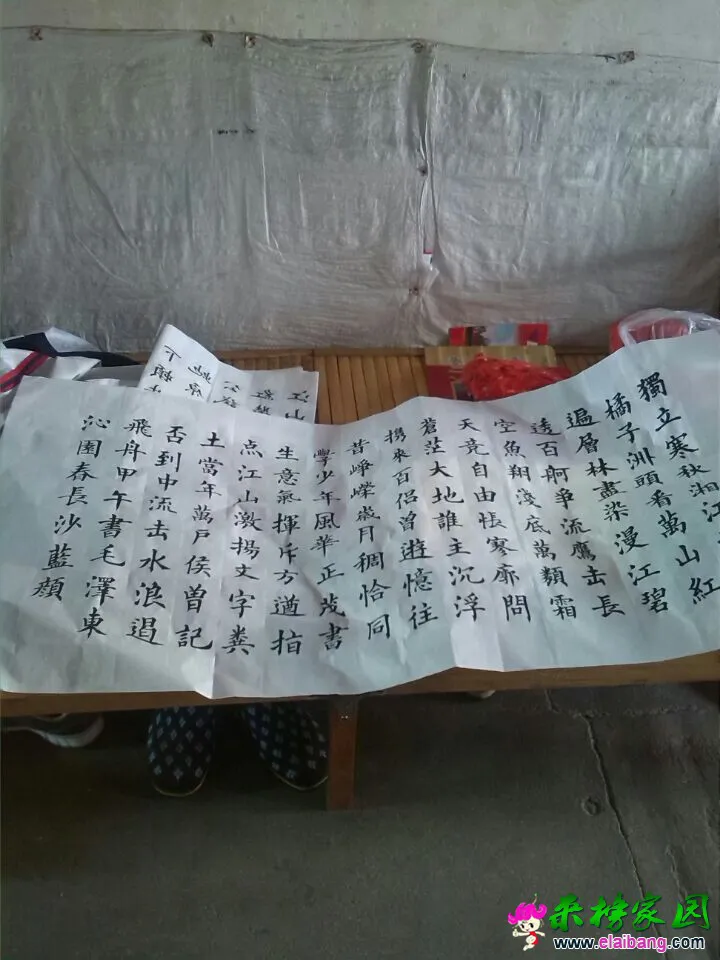 獨立寒秋湘江
橘子洲頭看萬山紅
遍層林盡染漫江碧
透百舸爭流鷹击長
空魚翔淺底萬類霜
天竞自由悵寥廓問
蒼茫大地誰主沉浮
携來百侣曾遊憶往
昔峥嶸歲月稠恰同
學少年風華正茂書
生意氣揮斥方遒指
点江山激揚文字粪
土當年萬戶侯曾記
否到中流击水浪遏
飛舟甲午書毛澤東
沁園春長沙藍顏
江山
来榜家园
www.elaibang.com